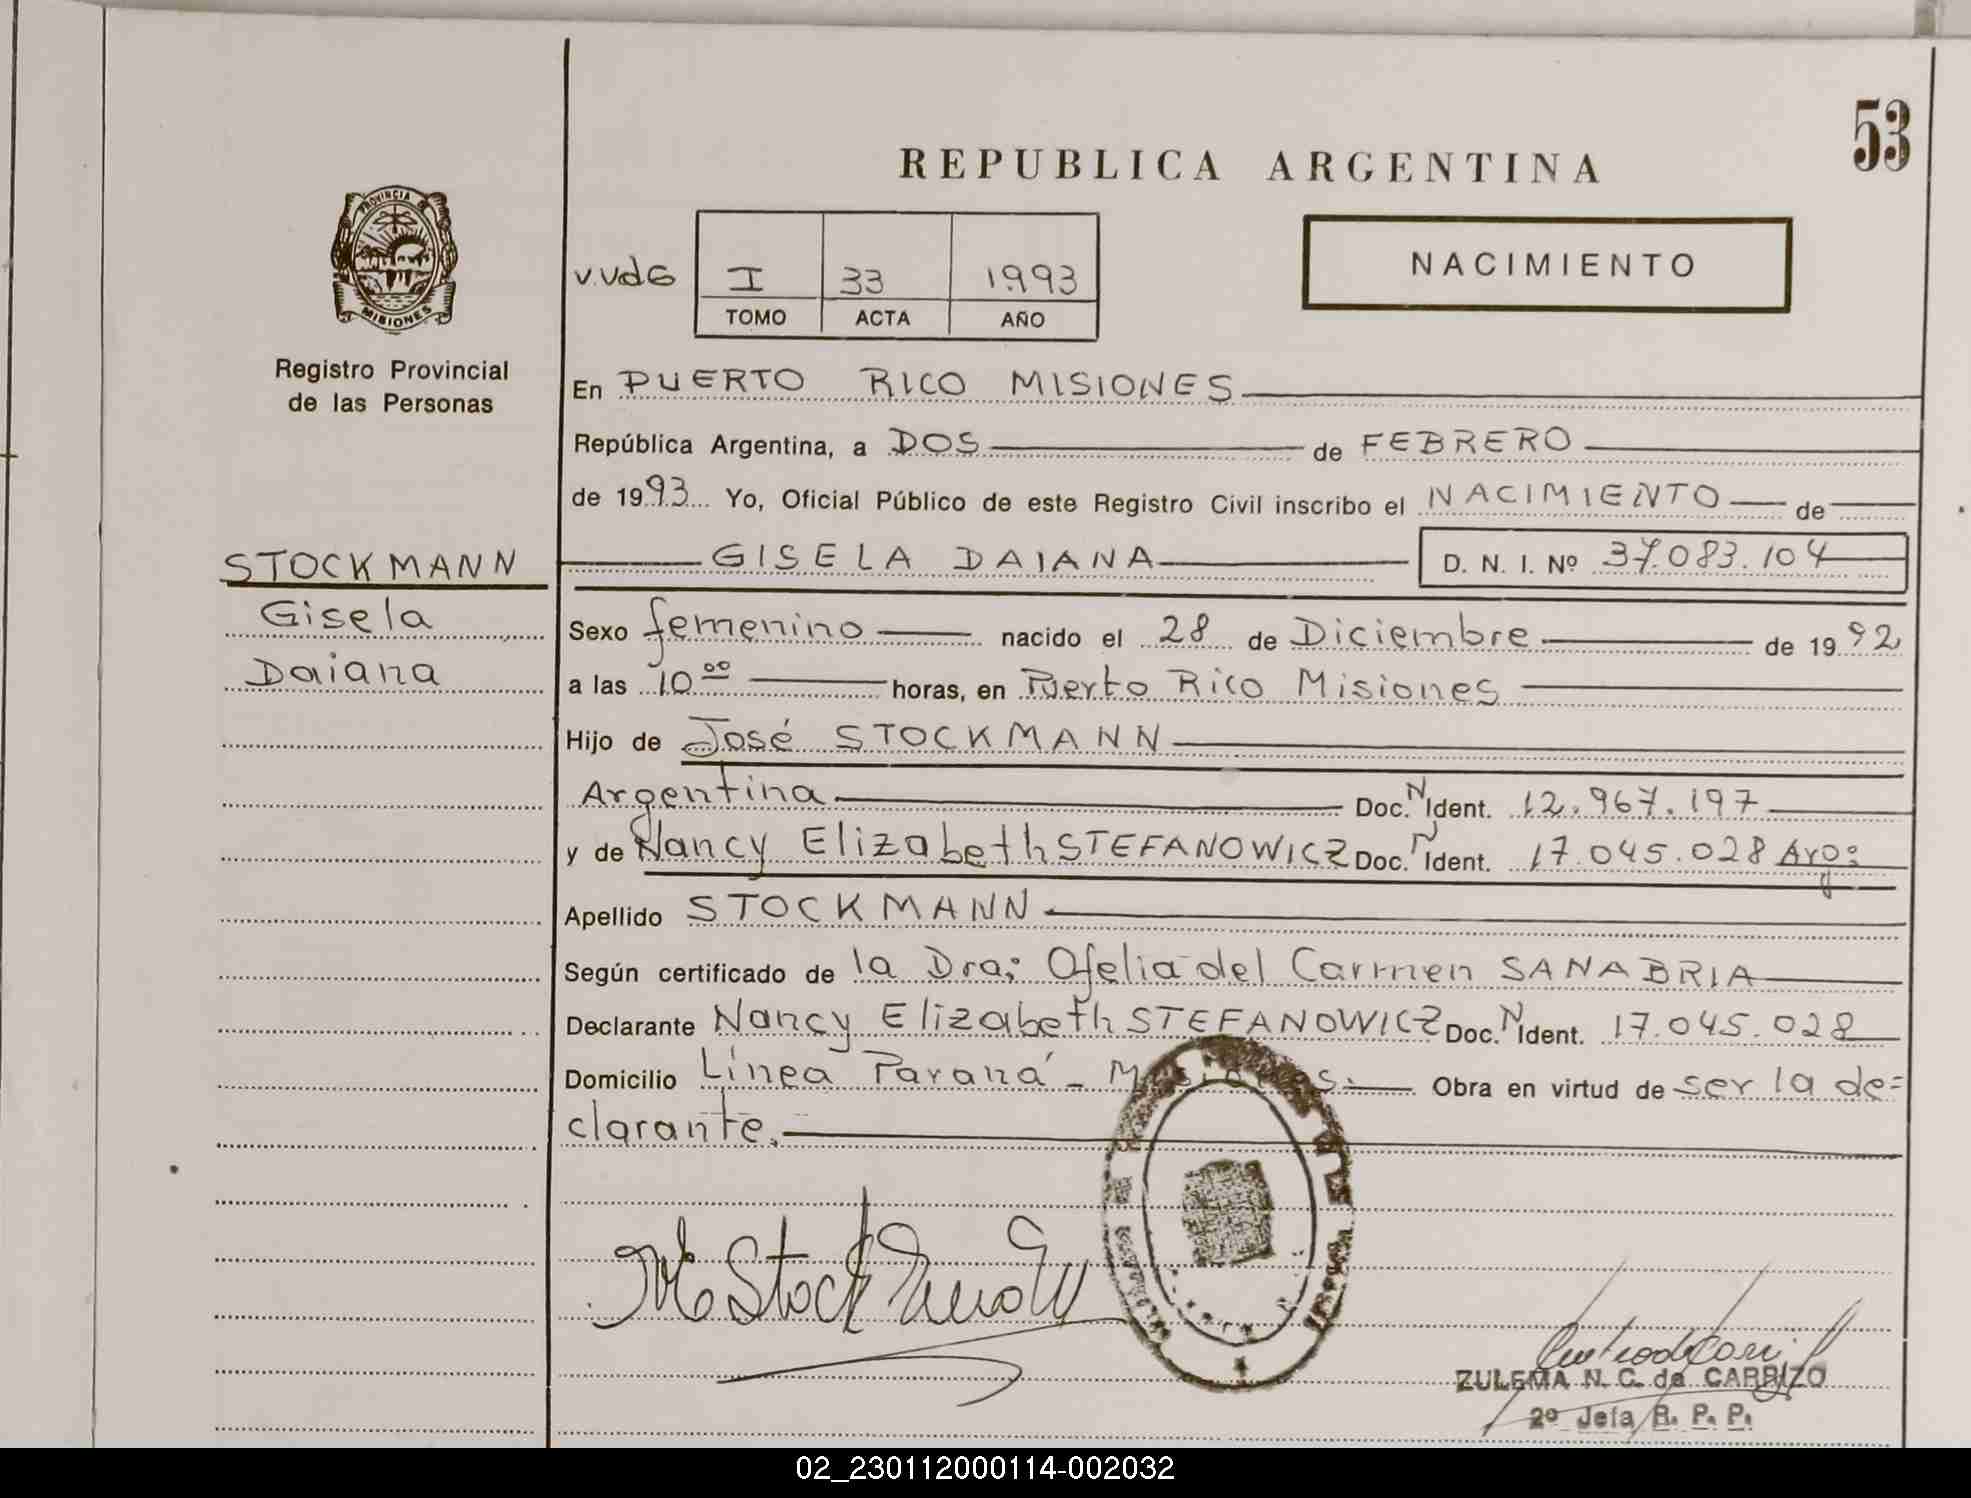 53
REPUBLICA ARGENTINA
PROVINCIA DE
MISIONES
Registro Provincial
de las Personas
V.VdG
I 33 1993
TOMO ACTA AÑO
NACIMIENTO
En PUERTO RICO MISIONES
República Argentina, a DOS de FEBRERO
de 1993 Yo, Oficial Público de este Registro Civil inscribo el NACIMIENTO de
GISELA DAIANA D. N. I. Nº 37.083.104
STOCKMANN
Gisela
Daiana
Sexo femenino nacido el 28 de Diciembre de 1992
a las 10 00 horas, en Puerto Rico Misiones
Hijo de José STOCKMANN
Argentina Doc. N Ident. 12.967.197
y de Nancy Elizabeth STEFANOWICZ Doc. N Ident. 17.045.028 Arg:
Apellido STOCKMANN
Según certificado de la Dra; Ofelia del Carmen SANABRIA
Declarante Nancy Elizabeth STEFANOWICZ Doc. N Ident. 17.045.028
Domicilio Línea Paraná - Misiones. Obra en virtud de ser la de=
clarante.
ZULEMA N. C. de CARRIZO
2º Jefa R. P. P.
02_230112000114-002032